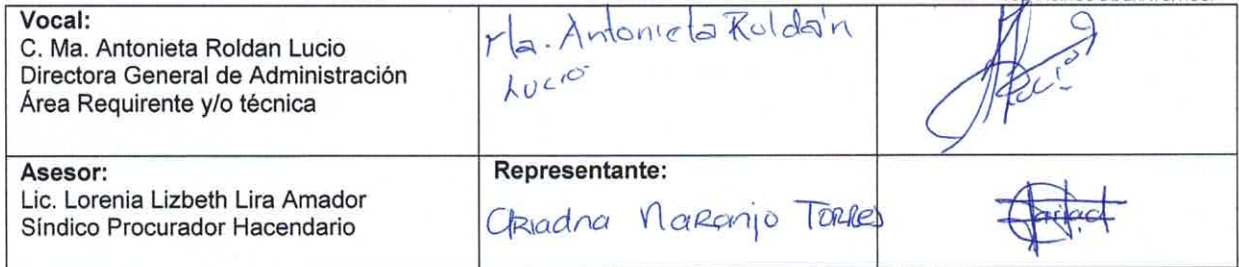 Vocal:
C. Ma. Antonieta Roldan Lucio
Directora General de Administración
Área Requirente y/o técnica
Ma. Antonieta Roldán
Lucio
Asesor:
Lic. Lorenia Lizbeth Lira Amador
Síndico Procurador Hacendario
Representante:
Ariadna Naranjo Torres